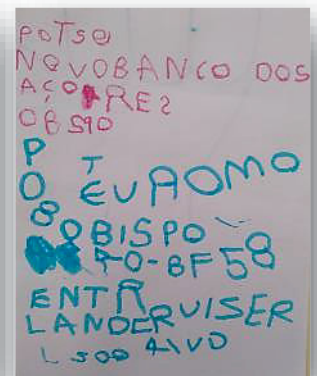 POTSO
NOVOBANCO DOS
AÇORES
OBSIO
P T
O EUROMO
8 OBISPO
70-BF58
ENTR
LANDERUISER